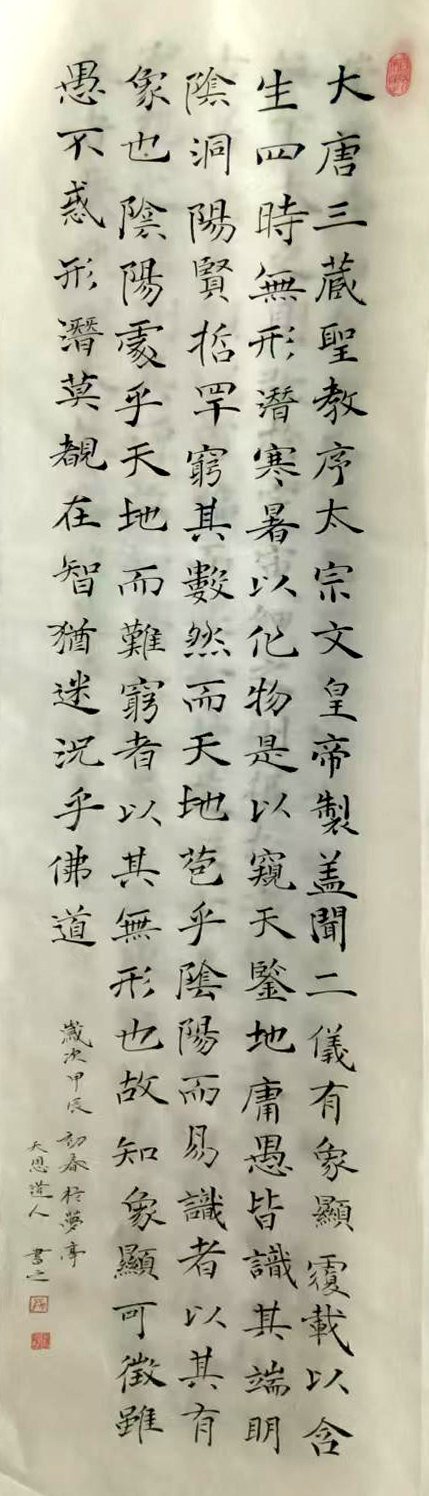 大唐三藏聖教序太宗文皇帝製盖聞二儀有象顯覆載以含
生四時無形潛寒暑以化物是以窺天鑒地庸愚皆識其端明
陰洞陽賢哲罕窮其數然而天地苞乎陰陽而易識者以其有
象也陰陽處乎天地而難窮者以其無形也故知象顯可徵雖
愚不惑形潛莫覩在智猶迷況乎佛道
歲次甲辰初春於夢亭
天恩道人書之